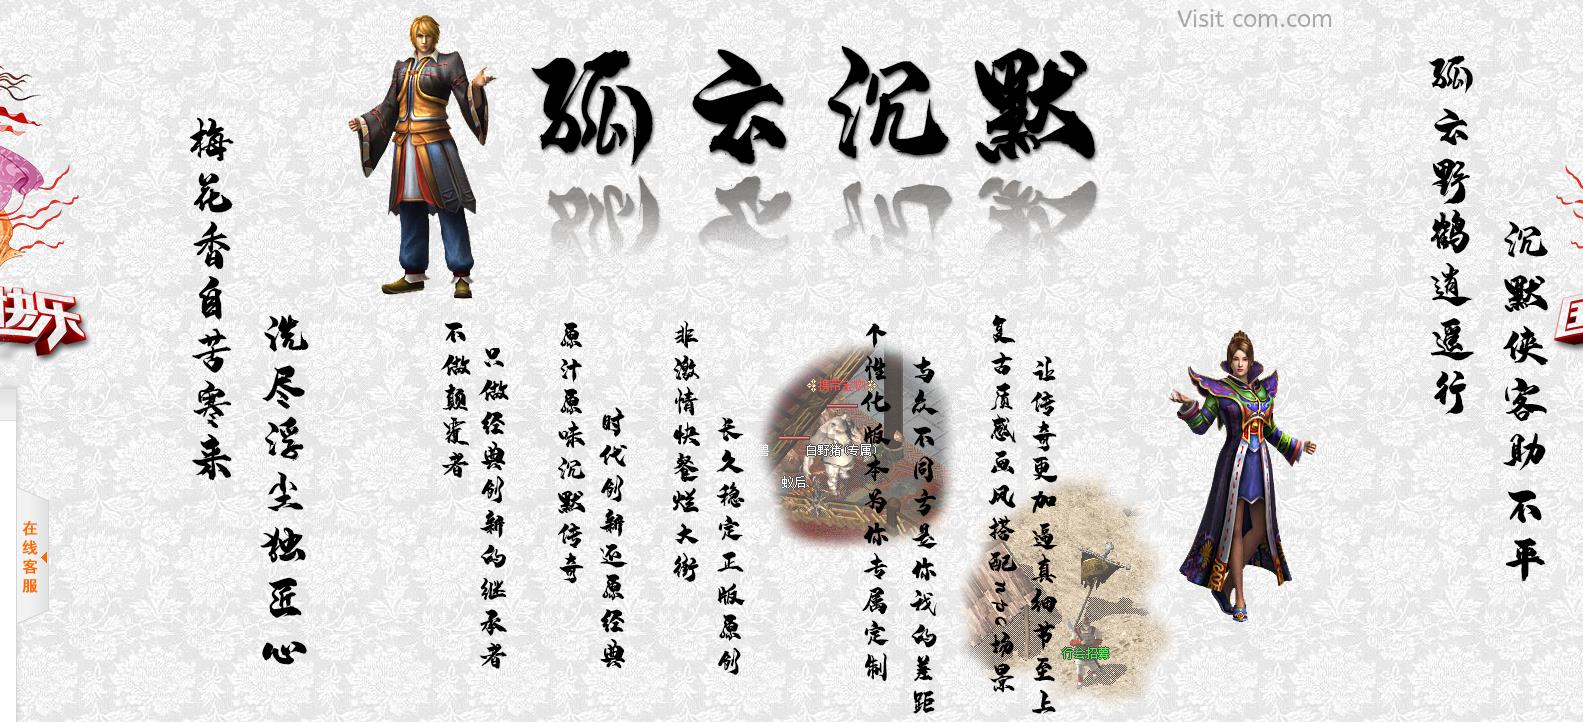 Visit com.com
孤云沉默
孤云野鹤逍遥行
沉默侠客助不平
梅花香自苦寒来
洗尽浮尘独匠心
不做颠覆者
只做经典创新的继承者
原汁原味沉默传奇
时代创新还原经典
非激情快餐烂大街
长久稳定正版原创
个性化版本为你专属定制
与众不同方是你我的差距
复古质感画风搭配npc场景
让传奇更加逼真细节至上
携带宝物
白野猪(专属)
蚁后
行会招募
快乐
国
在线客服